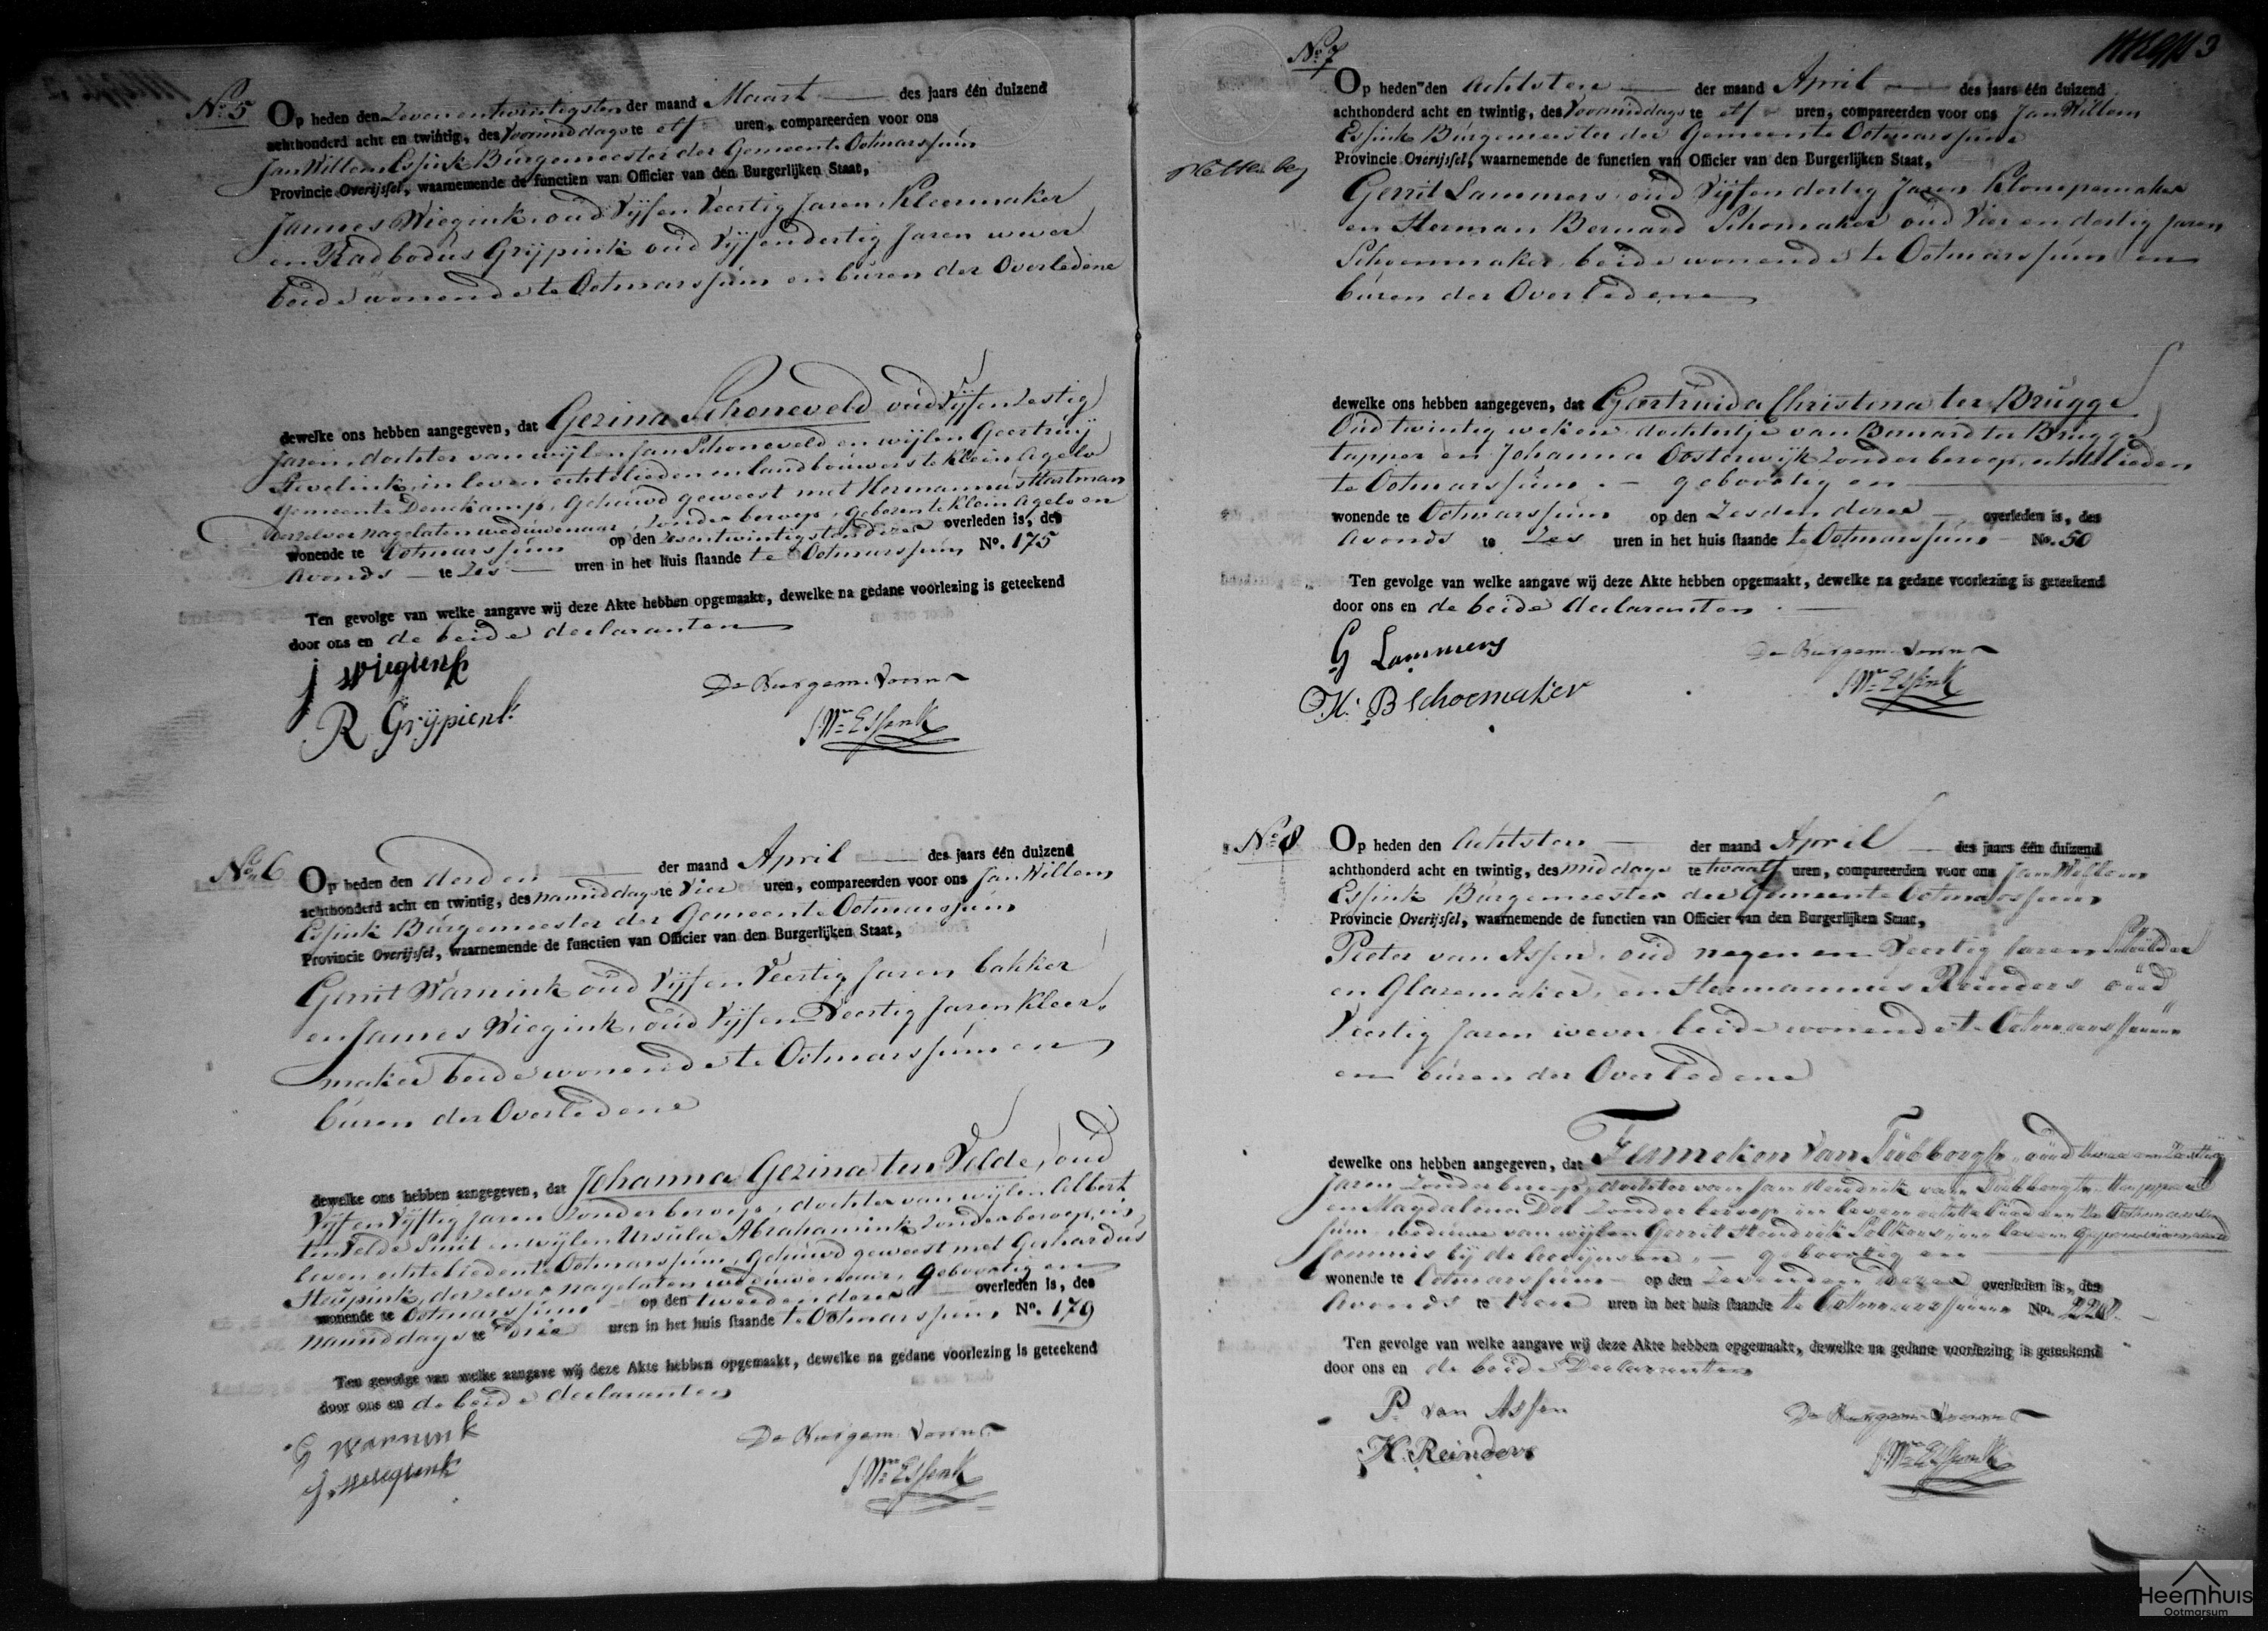 No. 5 Op heden den Zevenentwintigsten der maand Maart des jaars één duizend
achthonderd acht en twintig, des Voormiddags te elf uren, compareerden voor ons
Jan Willem Essink Burgemeester der Gemeente Ootmarssum
Provincie Overijssel, waarnemende de functien van Officier van den Burgerlijken Staat,
Jannes Wiegink oud Vijf en Veertig Jaren Kleermaker
en Radbodus Grijpink oud Vijf en dertig Jaren wever
beide wonende te Ootmarssum en buren der Overledene
dewelke ons hebben aangegeven, dat Gezina Schoneveld oud Vijf en Zestig
Jaren, dochter van wijlen Jan Schoneveld en wijlen Geertruij
in leven echtelieden en landbouwers te Klein Agelo
Gemeente Denekamp, Gehuwd geweest met Hermannus Hartman
derzelver nagelaten weduwenaar, zonder beroep, geboren te Klein Agelo en
wonende te Ootmarssum op den Zesentwintigsten dezer overleden is, des
Avonds te Zes uren in het huis staande te Ootmarssum No. 175
Ten gevolge van welke aangave wij deze Akte hebben opgemaakt, dewelke na gedane voorlezing is geteekend
door ons en de beide declaranten
J Wiegienk
R Grijpienk
De Burgem. Voorn
J Wm Essink
No. 6 Op heden den derden der maand April des jaars één duizend
achthonderd acht en twintig, des namiddags te Vier uren, compareerden voor ons Jan Willem
Essink Burgemeester der Gemeente Ootmarssum
Provincie Overijssel, waarnemende de functien van Officier van den Burgerlijken Staat,
Gerrit Warnink oud Vijf en Veertig Jaren bakker
en Jannes Wiegink, oud Vijf en Veertig Jaren Kleer
maker beide wonende te Ootmarssum en
buren der Overledene
dewelke ons hebben aangegeven, dat Johanna Gezina ten Velde, oud
Vijf en Vijftig Jaren zonder beroep, dochter van wijlen Albert
ten Velde Smit en wijlen Ursula Abrahamink zonder beroep, in
leven echtelieden te Ootmarssum, Gehuwd geweest met Gerhardus
derzelver nagelaten weduwenaar, geboortig en
wonende te Ootmarssum op den tweeden dezer overleden is, des
namiddags te drie uren in het huis staande te Ootmarssum No. 179
Ten gevolge van welke aangave wij deze Akte hebben opgemaakt, dewelke na gedane voorlezing is geteekend
door ons en de beide declaranten
G Warnink
J. Wiegienk
De Burgem. Voorn
J Wm Essink
3
No. 7
Op heden den Achtsten der maand April des jaars één duizend
achthonderd acht en twintig, des Voormiddags te elf uren, compareerden voor ons Jan Willem
Essink Burgemeester der Gemeente Ootmarssum
Provincie Overijssel, waarnemende de functien van Officier van den Burgerlijken Staat,
Gerrit Lammers oud Vijf en dertig Jaren Klompemaker
en Herman Bernard Schomaker oud Vier en dertig Jaren
Schoenmaker beide wonende te Ootmarssum en
buren der Overledene
dewelke ons hebben aangegeven, dat Geertruida Christena ter Brugge
Oud twintig weken dochtertje van Bernard ter Brugge
tapper en Johanna Oosterwijk zonder beroep, echtelieden
te Ootmarssum. geboortig en
wonende te Ootmarssum op den Zesden dezer overleden is, des
Avonds te Zes uren in het huis staande te Ootmarssum No. 50
Ten gevolge van welke aangave wij deze Akte hebben opgemaakt, dewelke na gedane voorlezing is geteekend
door ons en de beide declaranten
G Lammers
H: B Schoemaker
De Burgem. Voorn
J Wm Essink
No. 8 Op heden den Achtsten der maand April des jaars één duizend
achthonderd acht en twintig, des middags te twaalf uren, compareerden voor ons Jan Willem
Essink Burgemeester der Gemeente Ootmarssum
Provincie Overijssel, waarnemende de functien van Officier van den Burgerlijken Staat,
Pieter van Assen, oud negen en Veertig Jaren Schilder
en Glazemaker, en Hermannus Reinders oud
Veertig Jaren wever beide wonende te Ootmarssum
en buren der Overledene
dewelke ons hebben aangegeven, dat Fenneken van Tubbergh, oud
Jaren zonder beroep, dochter van Jan Hendrik van Tubbergh
en Magdalena Dol zonder beroep in leven echtelieden te Ootmars
sum weduwe van wijlen Gerrit Hendrik in leven
Commies bij de geboortig en
wonende te Ootmarssum op den Zevenden dezer overleden is, des
Avonds te uren in het huis staande te Ootmarssum No.
Ten gevolge van welke aangave wij deze Akte hebben opgemaakt, dewelke na gedane voorlezing is geteekend
door ons en de beide Declaranten
P. van Assen
H. Reinders
De Burgem. Voorn
J Wm Essink
Heemhuis
Ootmarsum